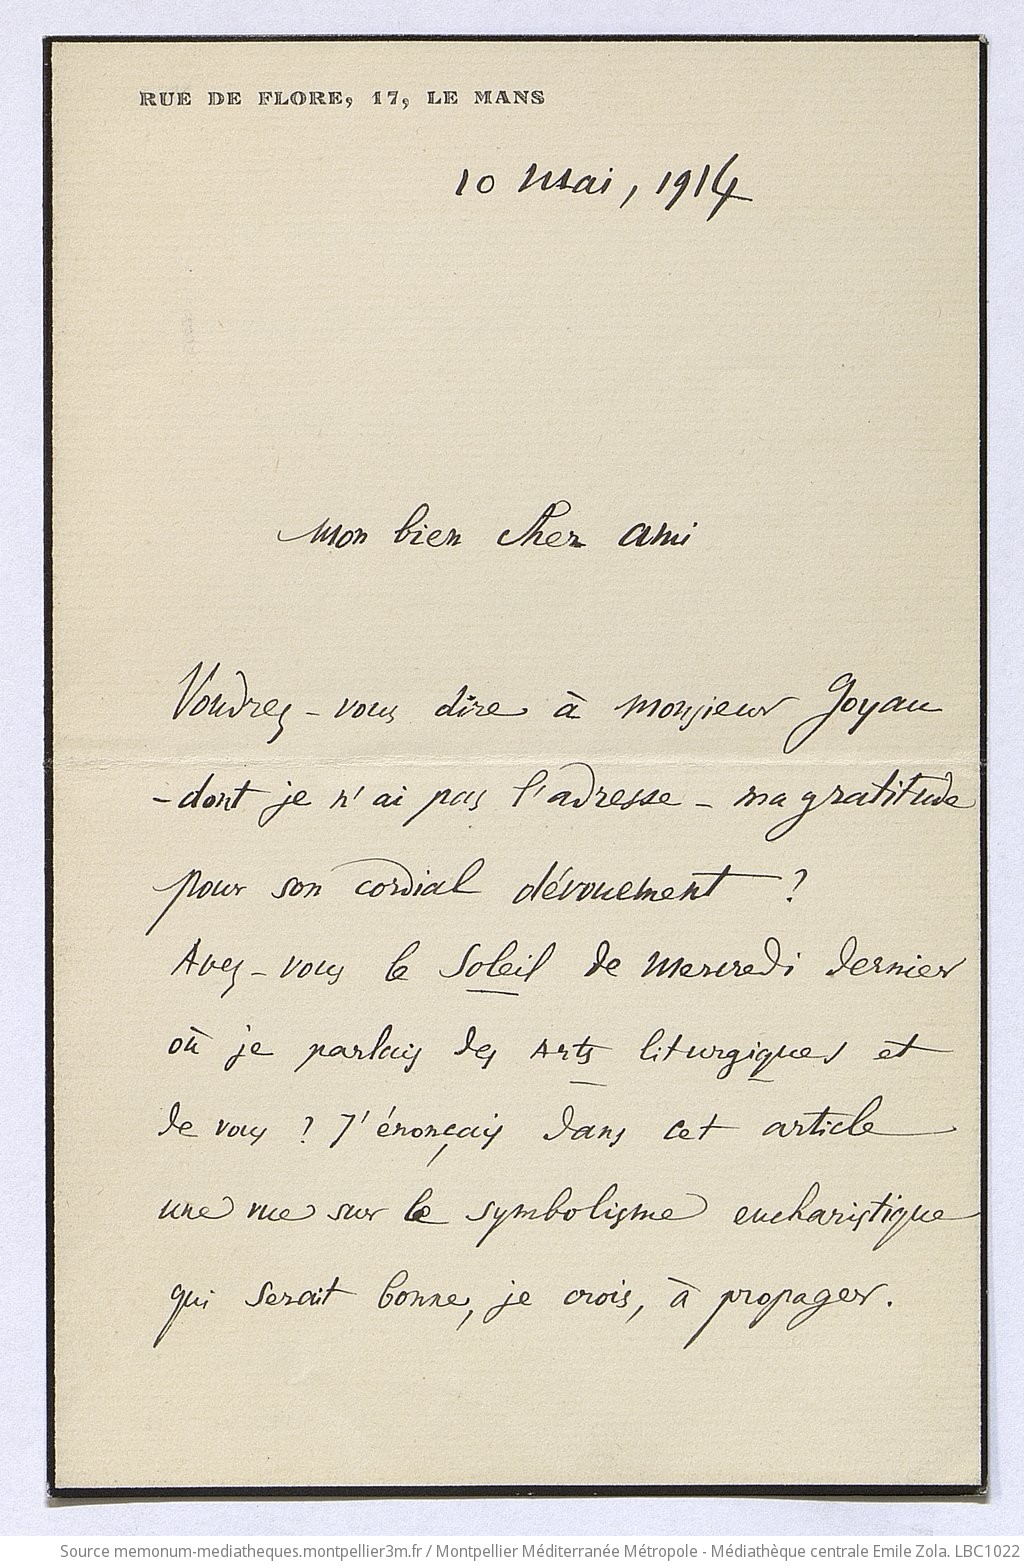 RUE DE FLORE, 17, LE MANS
10 mai, 1914
Mon bien cher ami
Voudrez-vous dire à Monsieur Goyau
- dont je n'ai pas l'adresse - ma gratitude
pour son cordial dévouement ?
Avez-vous le Soleil de Mercredi dernier
où je parlais des Arts liturgiques et
de vous ? J'énonçais dans cet article
une vue sur le symbolisme eucharistique
qui serait bonne, je crois, à propager.
Source memonum-mediatheques.montpellier3m.fr / Montpellier Méditerranée Métropole - Médiathèque centrale Emile Zola. LBC1022